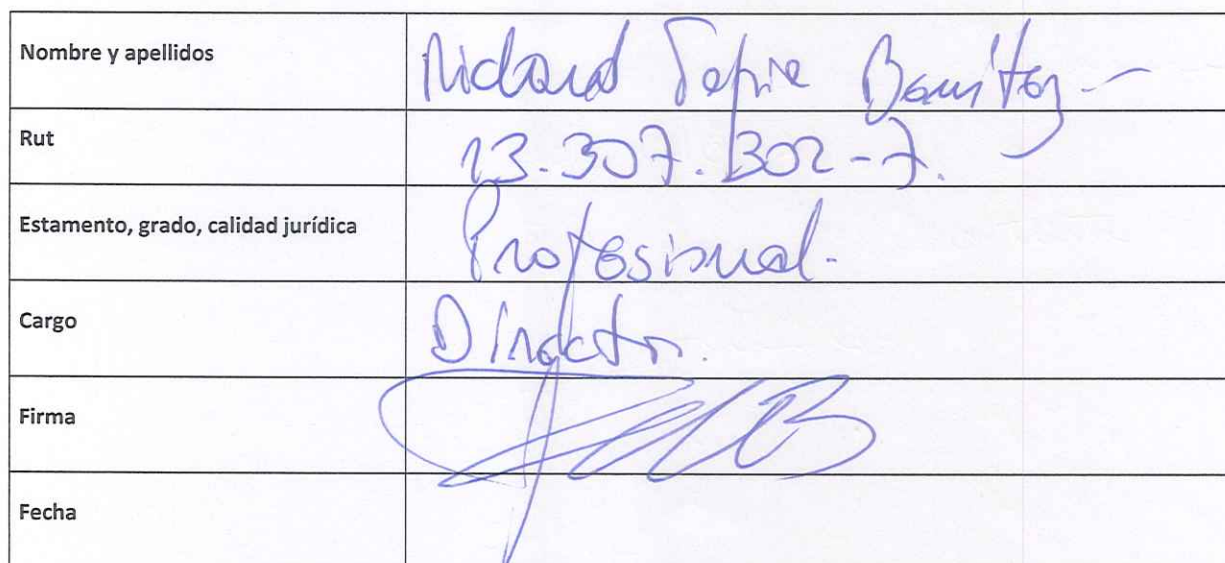 Nombre y apellidos
Richard Tapia Benítez -
Rut
13.307.302-7.
Estamento, grado, calidad jurídica
Profesional.
Cargo
Director.
Firma
Fecha